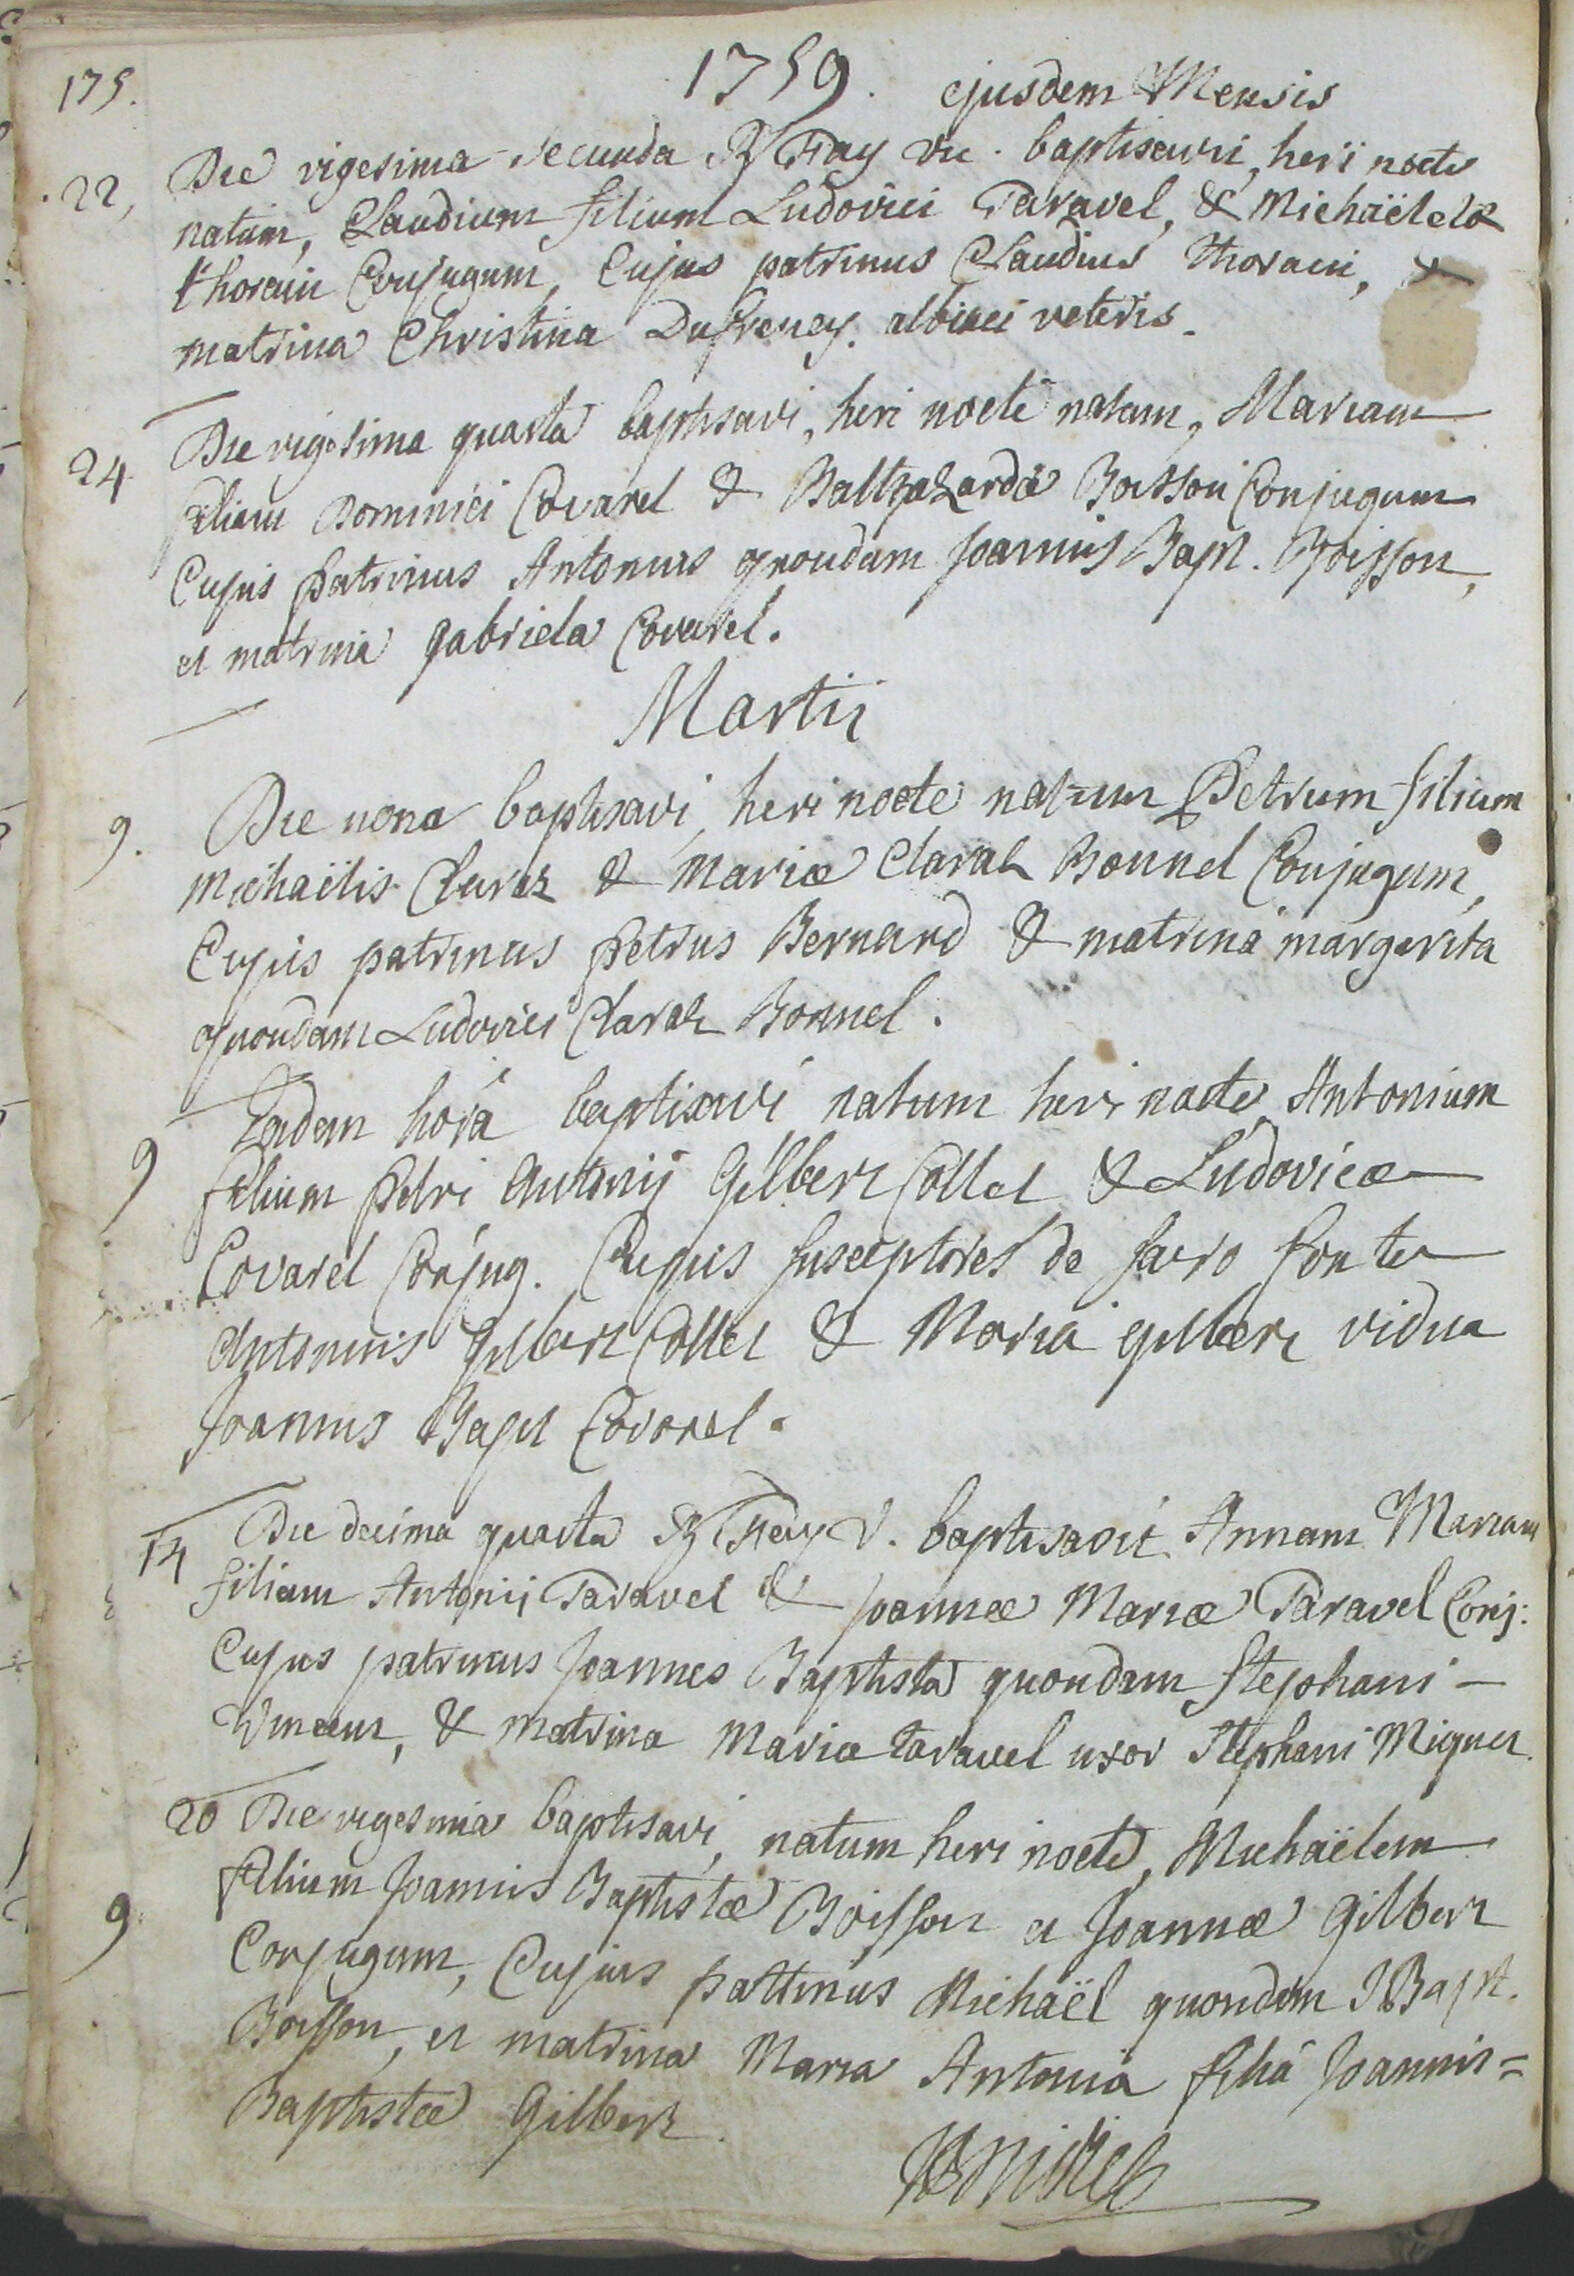 175.
1759.
ejusdem Mensis
22, Die vigesima secunda R Fay vic. baptisavi, heri nocte
natum, Claudium filium Ludovici Taravel, & Michaëlelæ
thorain Conjugum, Cujus patrinus Claudius Thorain, &
matrina Christina Dufreney. albiaci veteris.
24 Die vigesima quarta baptisavi, heri nocte natam, Mariam
filiam Dominici Covarel & Balthazardæ Boisson Conjugum
Cujus patrinus Antonius quondam Joannis Bapt. Boisson,
et matrina Gabriela Covarel.
Martii
9. Die nona baptisavi, heri nocte natum Petrum filium
Michaëlis Claraz & Mariæ Claraz Bonnel Conjugum,
Cujus patrinus Petrus Bernard & matrina margarita
quondam Ludovici Claraz Bonnel.
9 Eadem hora baptisavi natum heri nocte Antonium
filium Petri Antonij Gilbert Collet & Ludovicæ
Covarel Conjug. Cujus susceptores de sacro fonte
Antonius Gilbert Collet & Maria gilbert vidua
Joannis Bapt Covarel.
14 Die decima quarta R Fay V. baptisavit Annam Mariam
filiam Antonij Taravel & Joannæ Mariæ Taravel Conj:
Cujus patrinus Joannes Baptista quondam Stephani
Vincent, & matrina Maria taravel uxor Stephani Miguet.
20 Die vigesima baptisavi, natum heri nocte, Michaëlem
filium Joannis Baptistæ Boisson et Joannæ Gilbert
9. Conjugum, Cujus patrinus Michaël quondam J Bapt.
Boisson, et matrina Maria Antonia filia Joannis=
Baptistæ Gilbert.